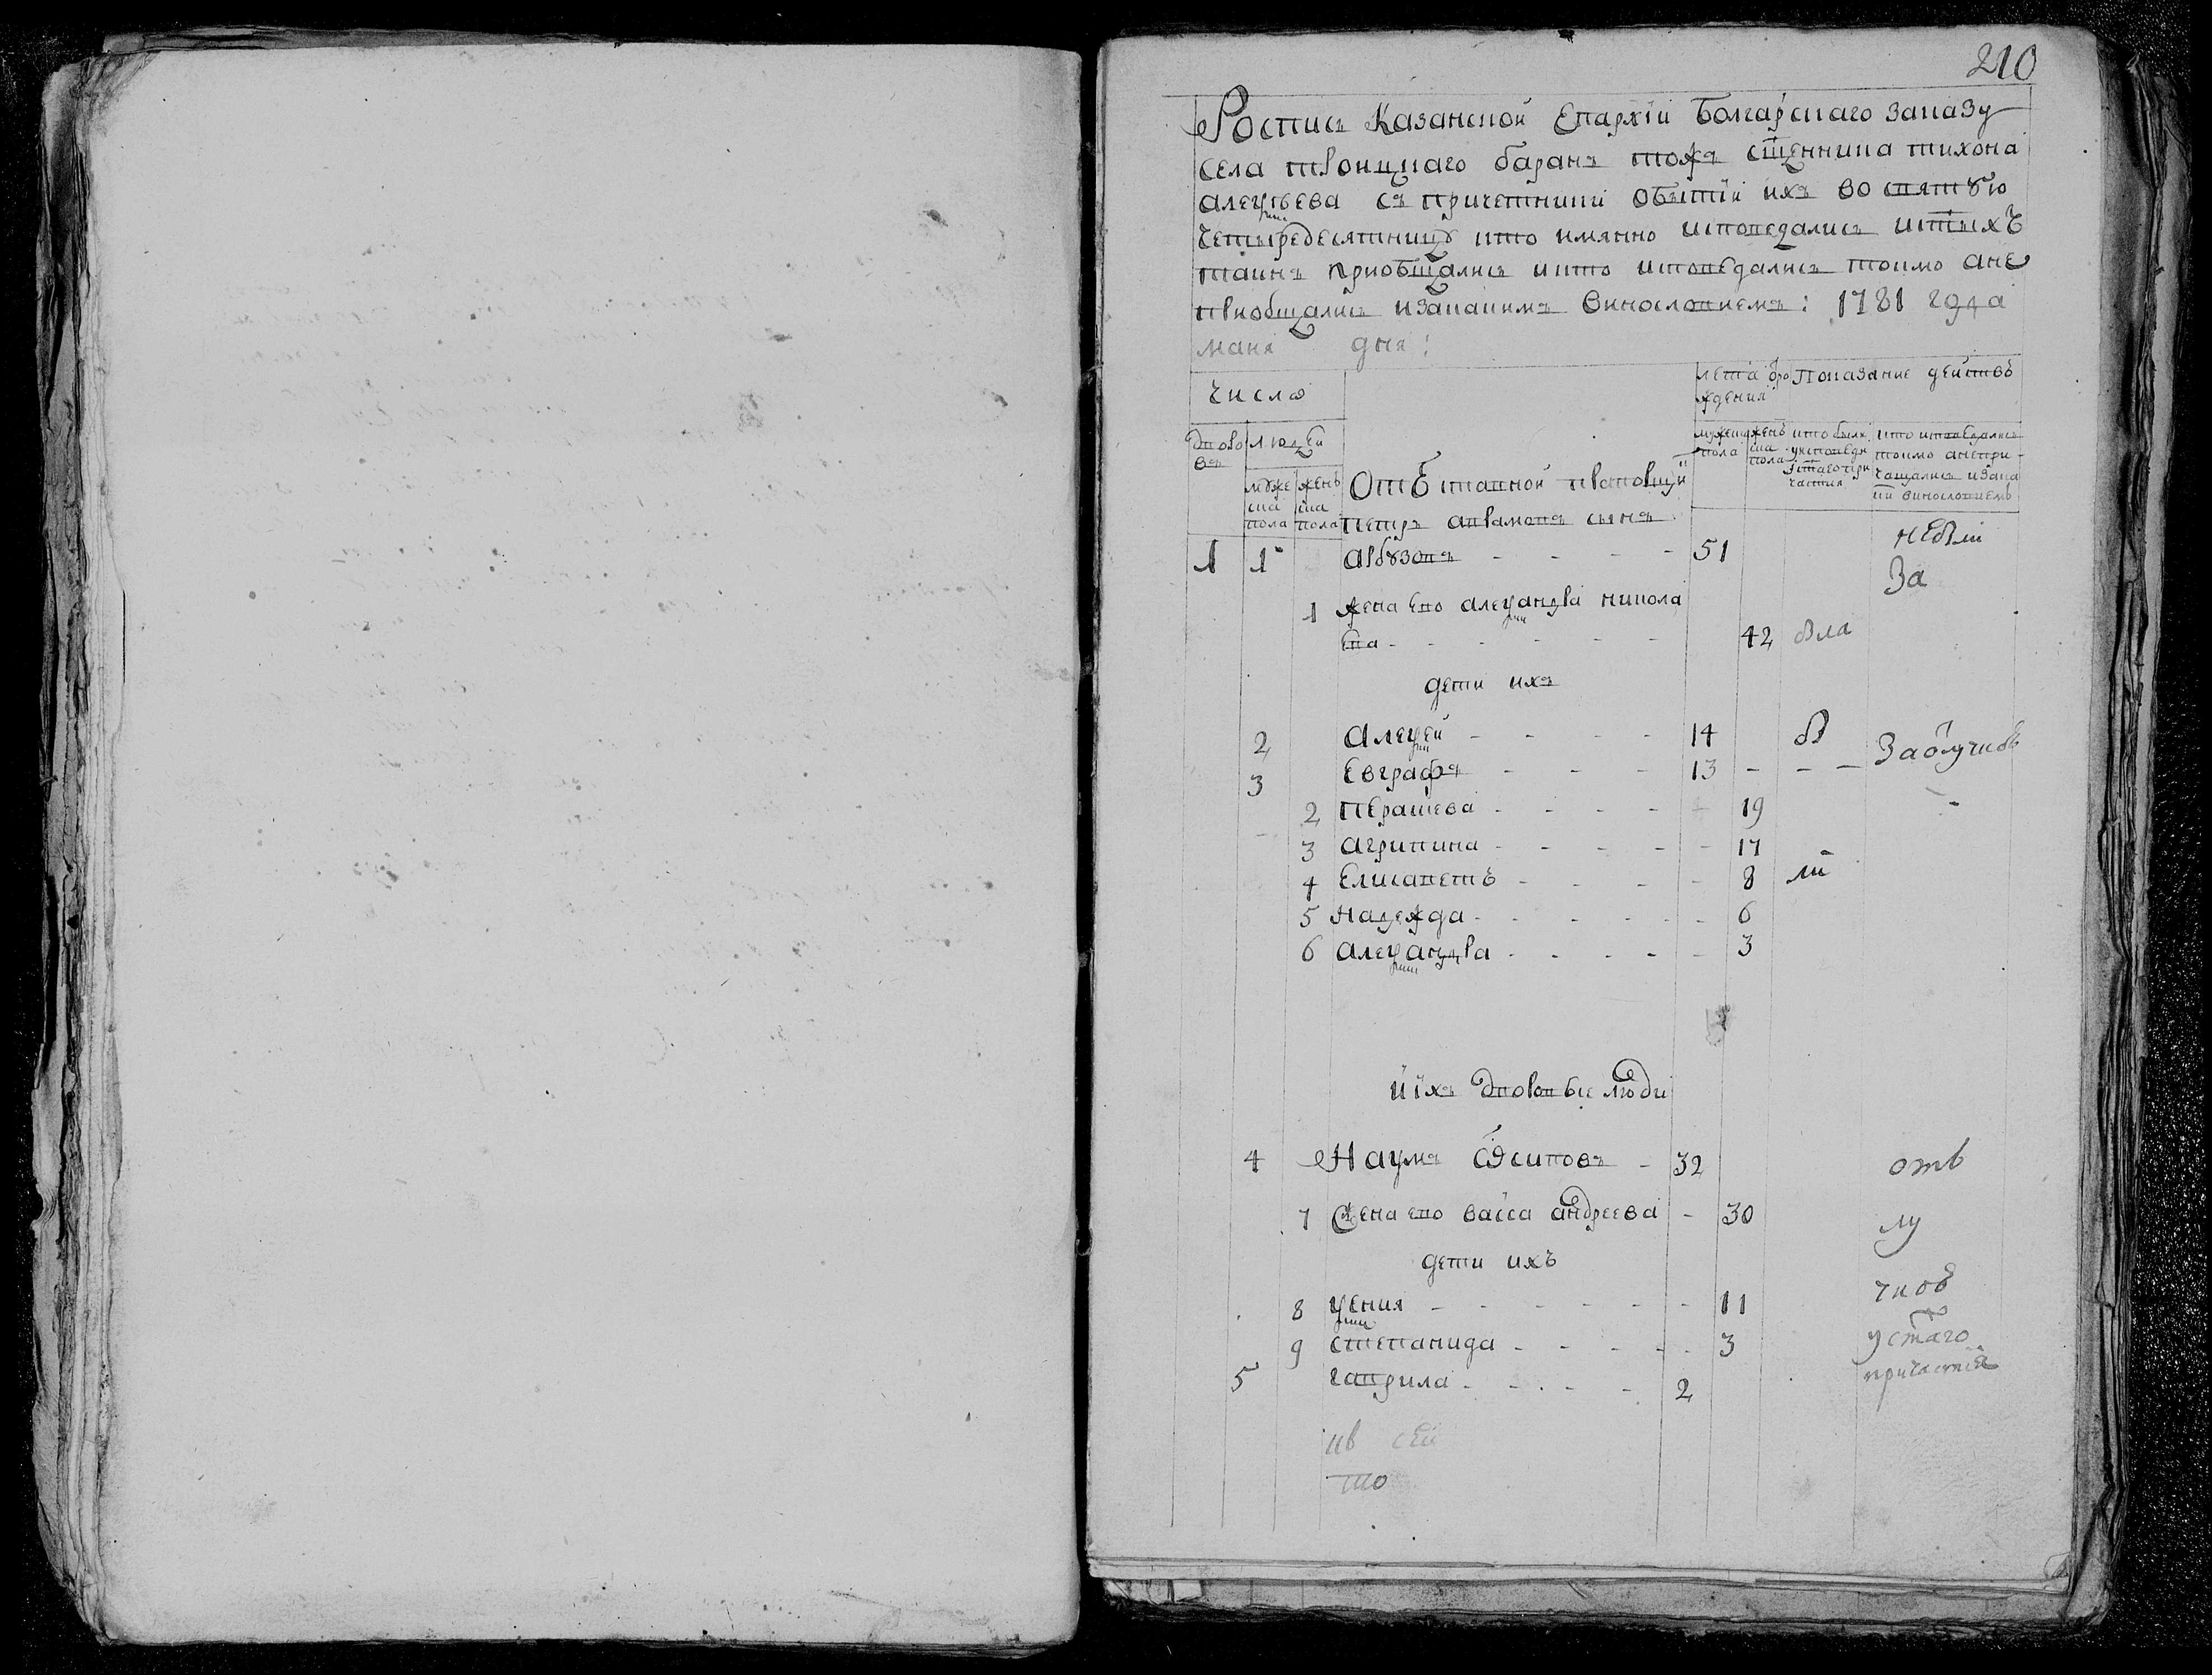 210
Роспись Казанской Епархіи Болгарскаго заказу
села троицкаго баранъ тожъ сщенника тихона
алексѣева съ причетники обытіи ихъ во святую
четыредесятницу кто имянно исповедались истыхъ
таинъ приобщались икто исповедались токмо ане
приобщались изакакимъ винословиемъ: 1781 года
маия дня:
Число
лета ѿро
ждения
Показание действъ
дворо
въ
людей
муже
ска
пола
женъ
ска
пола
мужеска
пола
женъ
ска
пола
кто были
уисповеди
істаго при
частия
кто исповедались
токмо анепри-
чащались изака
ки винословиемъ
Отставной
петръ
сынъ
1 1 арбузовъ - - - - 51
небыли
За
1 жена ево александра никола
ева - - - - - 42 была
дети ихъ
2 алексей - - - - 14 бы
Заѿлучкою
3 Евграфъ - - - 13 - - -
2 Пераскева - - - - 19
3 агрипина - - - - - 17
4 Елисаветъ - - - - 8 ли
5 Надежда - - - - - 6
6 александра - - - - - 3
и іхъ дворовые люди
4 Наумъ Осиповъ - 32
отъ
7 Жена ево васса андреева - 30
лу
дети ихъ
8 ксения - - - - - - 11
чкою
9 степанида - - - - - 3
устаго
5 гаврила - - - - - 2
причастия
ив сей
то